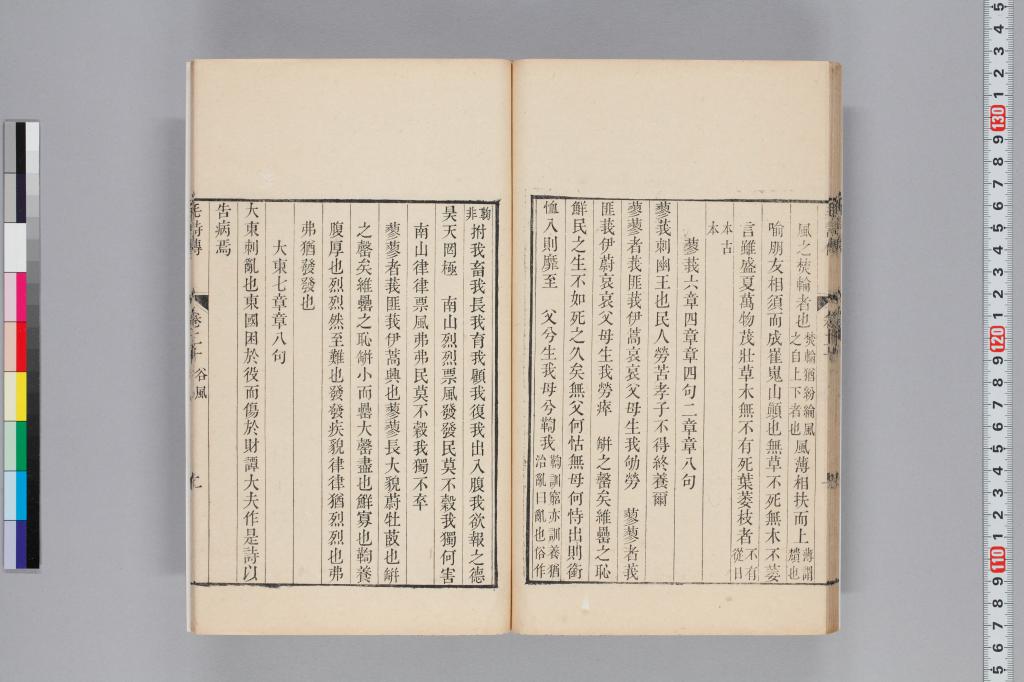 風之焚輪者也焚輪猶紛綸風之自上下者也風薄相扶而上薄謂
喻朋友相須而成崔嵬山顛也無草不死無木不萎
言雖盛夏萬物茂壯草木無不有死葉萎枝者不有從日
本古本
蓼莪六章四章章四句二章章八句
蓼莪刺幽王也民人勞苦孝子不得終養爾
蓼蓼者莪匪莪伊蒿哀哀父母生我劬勞 蓼蓼者莪
匪莪伊蔚哀哀父母生我勞瘁 缾之罄矣維罍之恥
鮮民之生不如死之久矣無父何怙無母何恃出則銜
恤入則靡至 父兮生我母兮鞫我鞫訓窮亦訓養猶治亂曰亂也俗作
鞠非拊我畜我長我育我顧我復我出入腹我欲報之德
昊天罔極 南山烈烈票風發發民莫不穀我獨何害
南山律律票風弗弗民莫不穀我獨不卒
蓼蓼者莪匪莪伊蒿興也蓼蓼長大貌蔚牡菣也缾
之罄矣維罍之恥缾小而罍大罄盡也鮮寡也鞫養
腹厚也烈烈然至難也發發疾貌律律猶烈烈也弗
弗猶發發也
大東七章章八句
大東刺亂也東國困於役而傷於財譚大夫作是詩以
告病焉
毛詩傳 卷二十 谷風